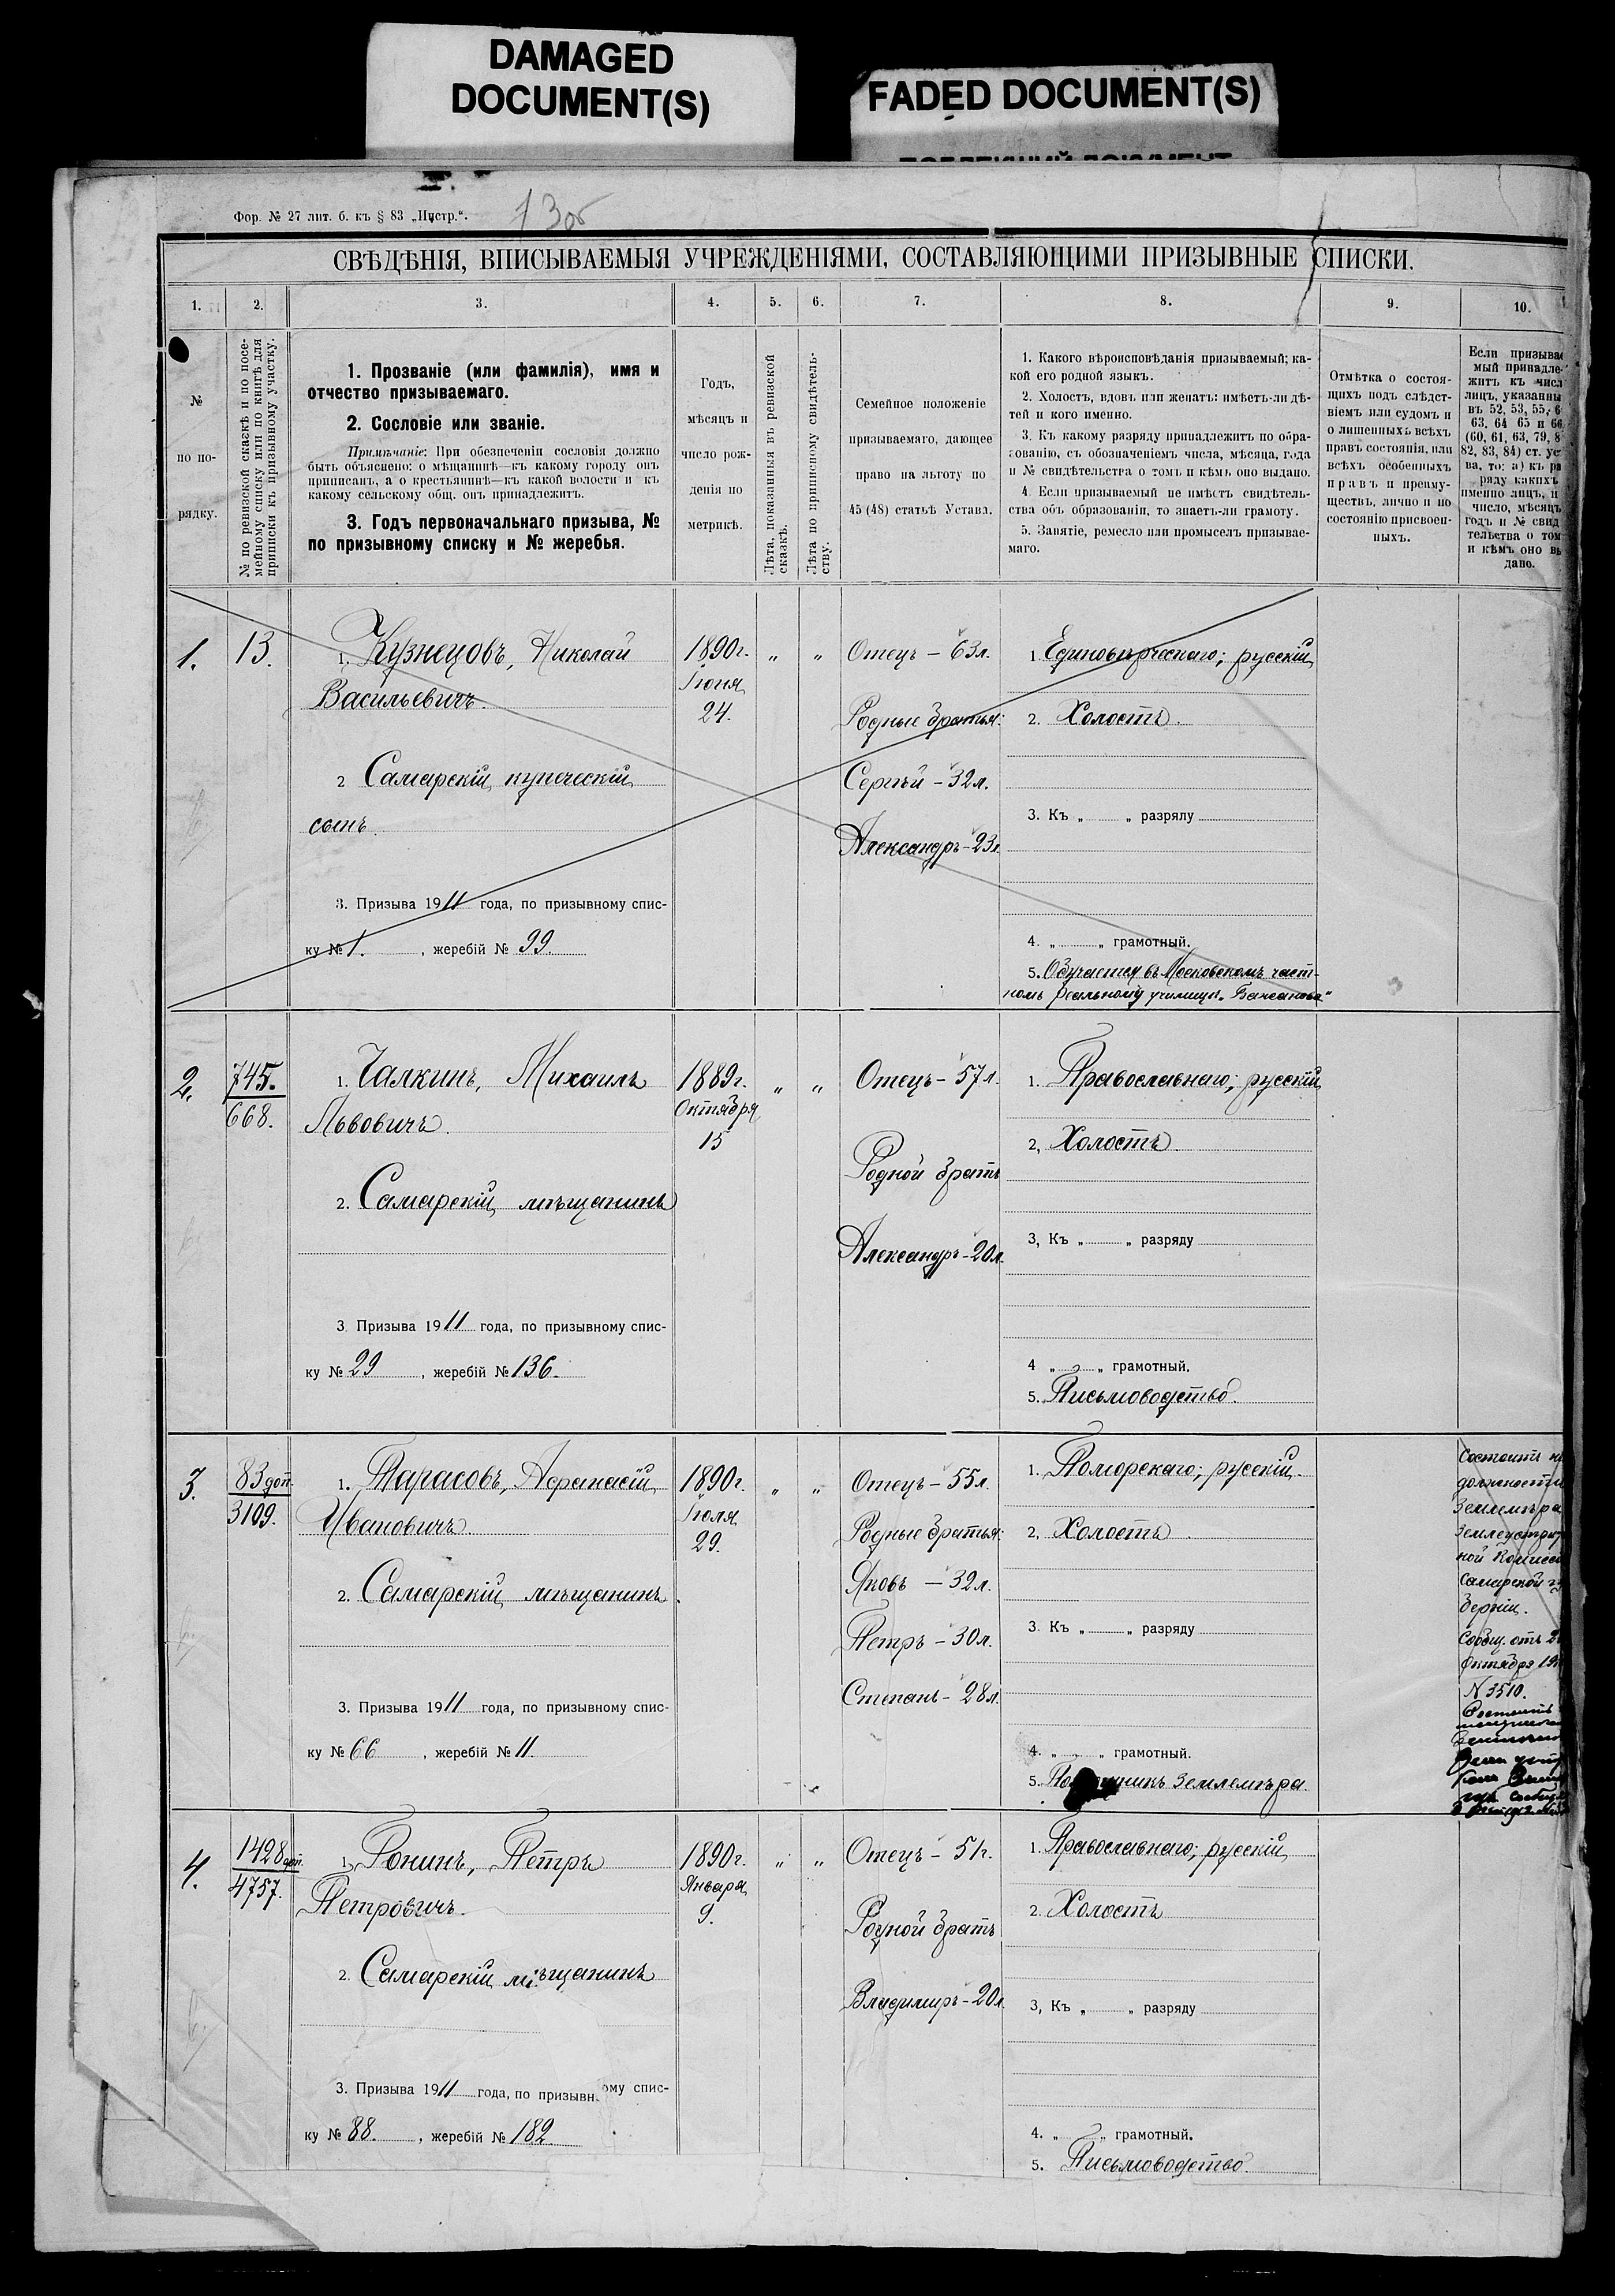 DAMAGED
DOCUMENT(S)
FADED DOCUMENT(S)
Фор. № 27 лит. б. къ § 83 „Инстр.“.
73об
СВѢДѢНІЯ, ВПИСЫВАЕМЫЯ УЧРЕЖДЕНІЯМИ, СОСТАВЛЯЮЩИМИ ПРИЗЫВНЫЕ СПИСКИ.
1. 2. 3. 4. 5. 6. 7. 8. 9. 10.
№
по по-
рядку.
№ по ревизской сказкѣ и по посе-
мейному списку или по книгѣ для
приписки къ призывному участку.
1. Прозваніе (или фамилія), имя и
отчество призываемаго.
2. Сословіе или званіе.
Примѣчаніе: При обезпеченіи сословія должно
быть объяснено: о мѣщанинѣ—къ какому городу онъ
приписанъ, а о крестьянинѣ—къ какой волости и къ
какому сельскому общ. онъ принадлежитъ.
3. Годъ первоначальнаго призыва, №
по призывному списку и № жеребья.
Годъ,
мѣсяцъ и
число рож-
денія по
метрикѣ.
Лѣта, показанныя въ ревизской
сказкѣ.
Лѣта по приписному свидѣтель-
ству.
Семейное положеніе
призываемаго, дающее
право на льготу по
45 (48) статьѣ Устава.
1. Какого вѣроисповѣданія призываемый; ка-
кой его родной языкъ.
2. Холостъ, вдовъ или женатъ: имѣетъ-ли дѣ-
тей и кого именно.
3. Къ какому разряду принадлежитъ по обра-
зованію, съ обозначеніемъ числа, мѣсяца, года
и № свидѣтельства о томъ и кѣмъ оно выдано.
4. Если призываемый не имѣетъ свидѣтель-
ства объ образованіи, то знаетъ-ли грамоту.
5. Занятіе, ремесло или промыселъ призывае-
маго.
Отмѣтка о состоя-
щихъ подъ слѣдст-
віемъ или судомъ и
о лишенныхъ всѣхъ
правъ состоянія, или
всѣхъ особенныхъ
правъ и преиму-
ществъ, лично и по
состоянію присвоен-
ныхъ.
Если призывае
мый принадле-
житъ къ числ
лицъ, указанны
въ 52, 53, 55, 6
63, 64 65 и 66
(60, 61, 63, 79, 8
82, 83, 84) ст. ус
ва, то: а) къ ра
ряду какихъ
именно лицъ, и
число, мѣсяцъ
годъ и № свид
тельства о том
и кѣмъ оно вы
дано.
1.
13.
1. Кузнецовъ, Николай
Васильевичъ.
2 Самарскій купеческій
сынъ.
3. Призыва 1911 года, по призывному спис-
ку № 1. , жеребій № 99.
1890г.
Іюня
24.
„ „
Отецъ – 63л.
Родные братья:
Сергѣй – 32л.
Александръ – 23л
1. Единовѣрческаго; русскій
2. Холостъ.
3. Къ „ „ разряду
4. „ „ грамотный.
5. Обучается въ Московскомъ част-
номъ реальному училищѣ
2.
745.
668.
1. Чалкинъ, Михаилъ
Львовичъ.
2. Самарскій мѣщанинъ
3 Призыва 1911 года, по призывному спис-
ку № 29 , жеребій № 136.
1889г.
Октября
15
„ „
Отецъ – 57л.
Родной братъ
Александръ – 20л.
1. Православнаго; русскій
2, Холостъ.
3, Къ „ „ разряду
4 „ „ грамотный.
5. Письмоводство.
3.
83 доп.
3109.
1. Тарасовъ, Афанасій
Ивановичъ
2. Самарскій мѣщанинъ.
3. Призыва 1911 года, по призывному спис-
ку № 66 , жеребій № 11.
1890г.
Іюля
29.
„ „
Отецъ – 55л.
Родные братья:
Яковъ – 32л.
Петръ – 30л.
Степанъ – 28л.
1. Поморскаго; русскій.
2, Холостъ
3. Къ „ „ разряду
4. „ „ грамотный.
5. По щникъ землемѣра.
Состоитъ
должности
землемѣра
землеустрои
ной Комисс
Самарской гу
берніи.
Сообщ. отъ 2
Октября 19
N 3510.
4.
1428 доп.
4757.
1. Ронинъ, Петръ
Петровичъ.
2. Самарскій мѣщанинъ
3. Призыва 1911 года, по призывному спис-
ку № 88. , жеребій № 182
1890г.
Января
9.
„ „
Отецъ – 51г.
Родной братъ
Владимиръ – 20л
1. Православнаго; русскій
2. Холостъ
3, Къ „ „ разряду
4. „ „ грамотный.
5. Письмоводство.